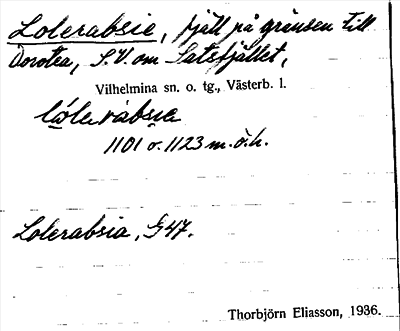 Lolerabsie, fjäll på gränsen till
Dorotea, S.V. om Satsfjället,
Vilhelmina sn. o. tg., Västerb. l.
lóleràbsia
1101 o. 1123 m.ö.h.
Lolerabsia, § 47.
Thorbjörn Eliasson, 1936.